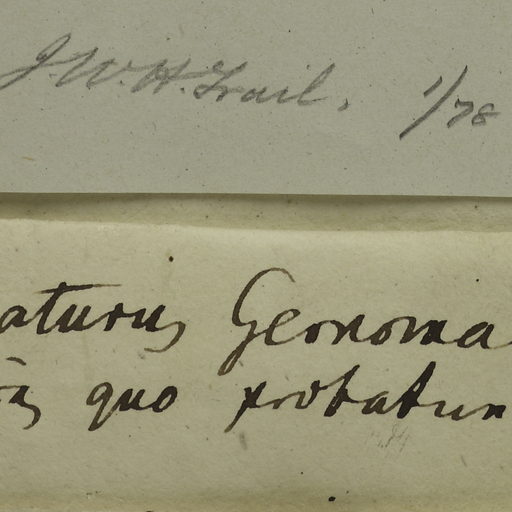 J.W.H. Trail. 1/78
aturus Geonoma
quo probatur